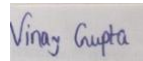 Vinay Gupta